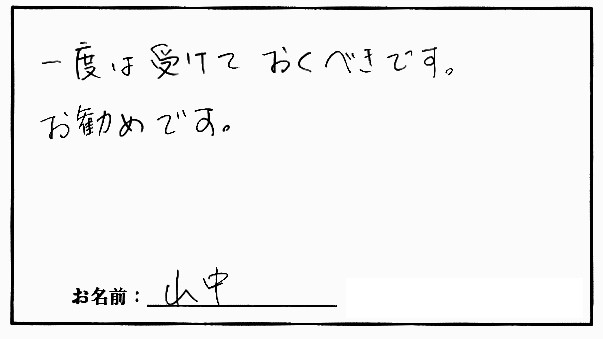 一度は受けておくべきです。
お勧めです。
お名前：山中